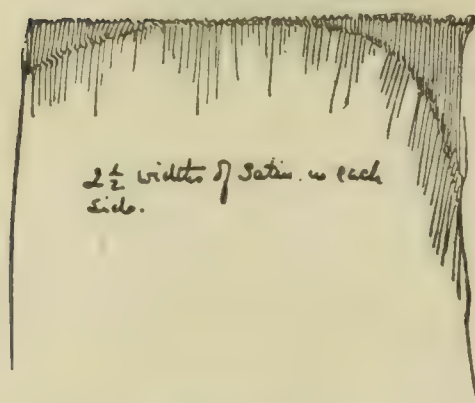 2½ widths of Satin. in each
side.